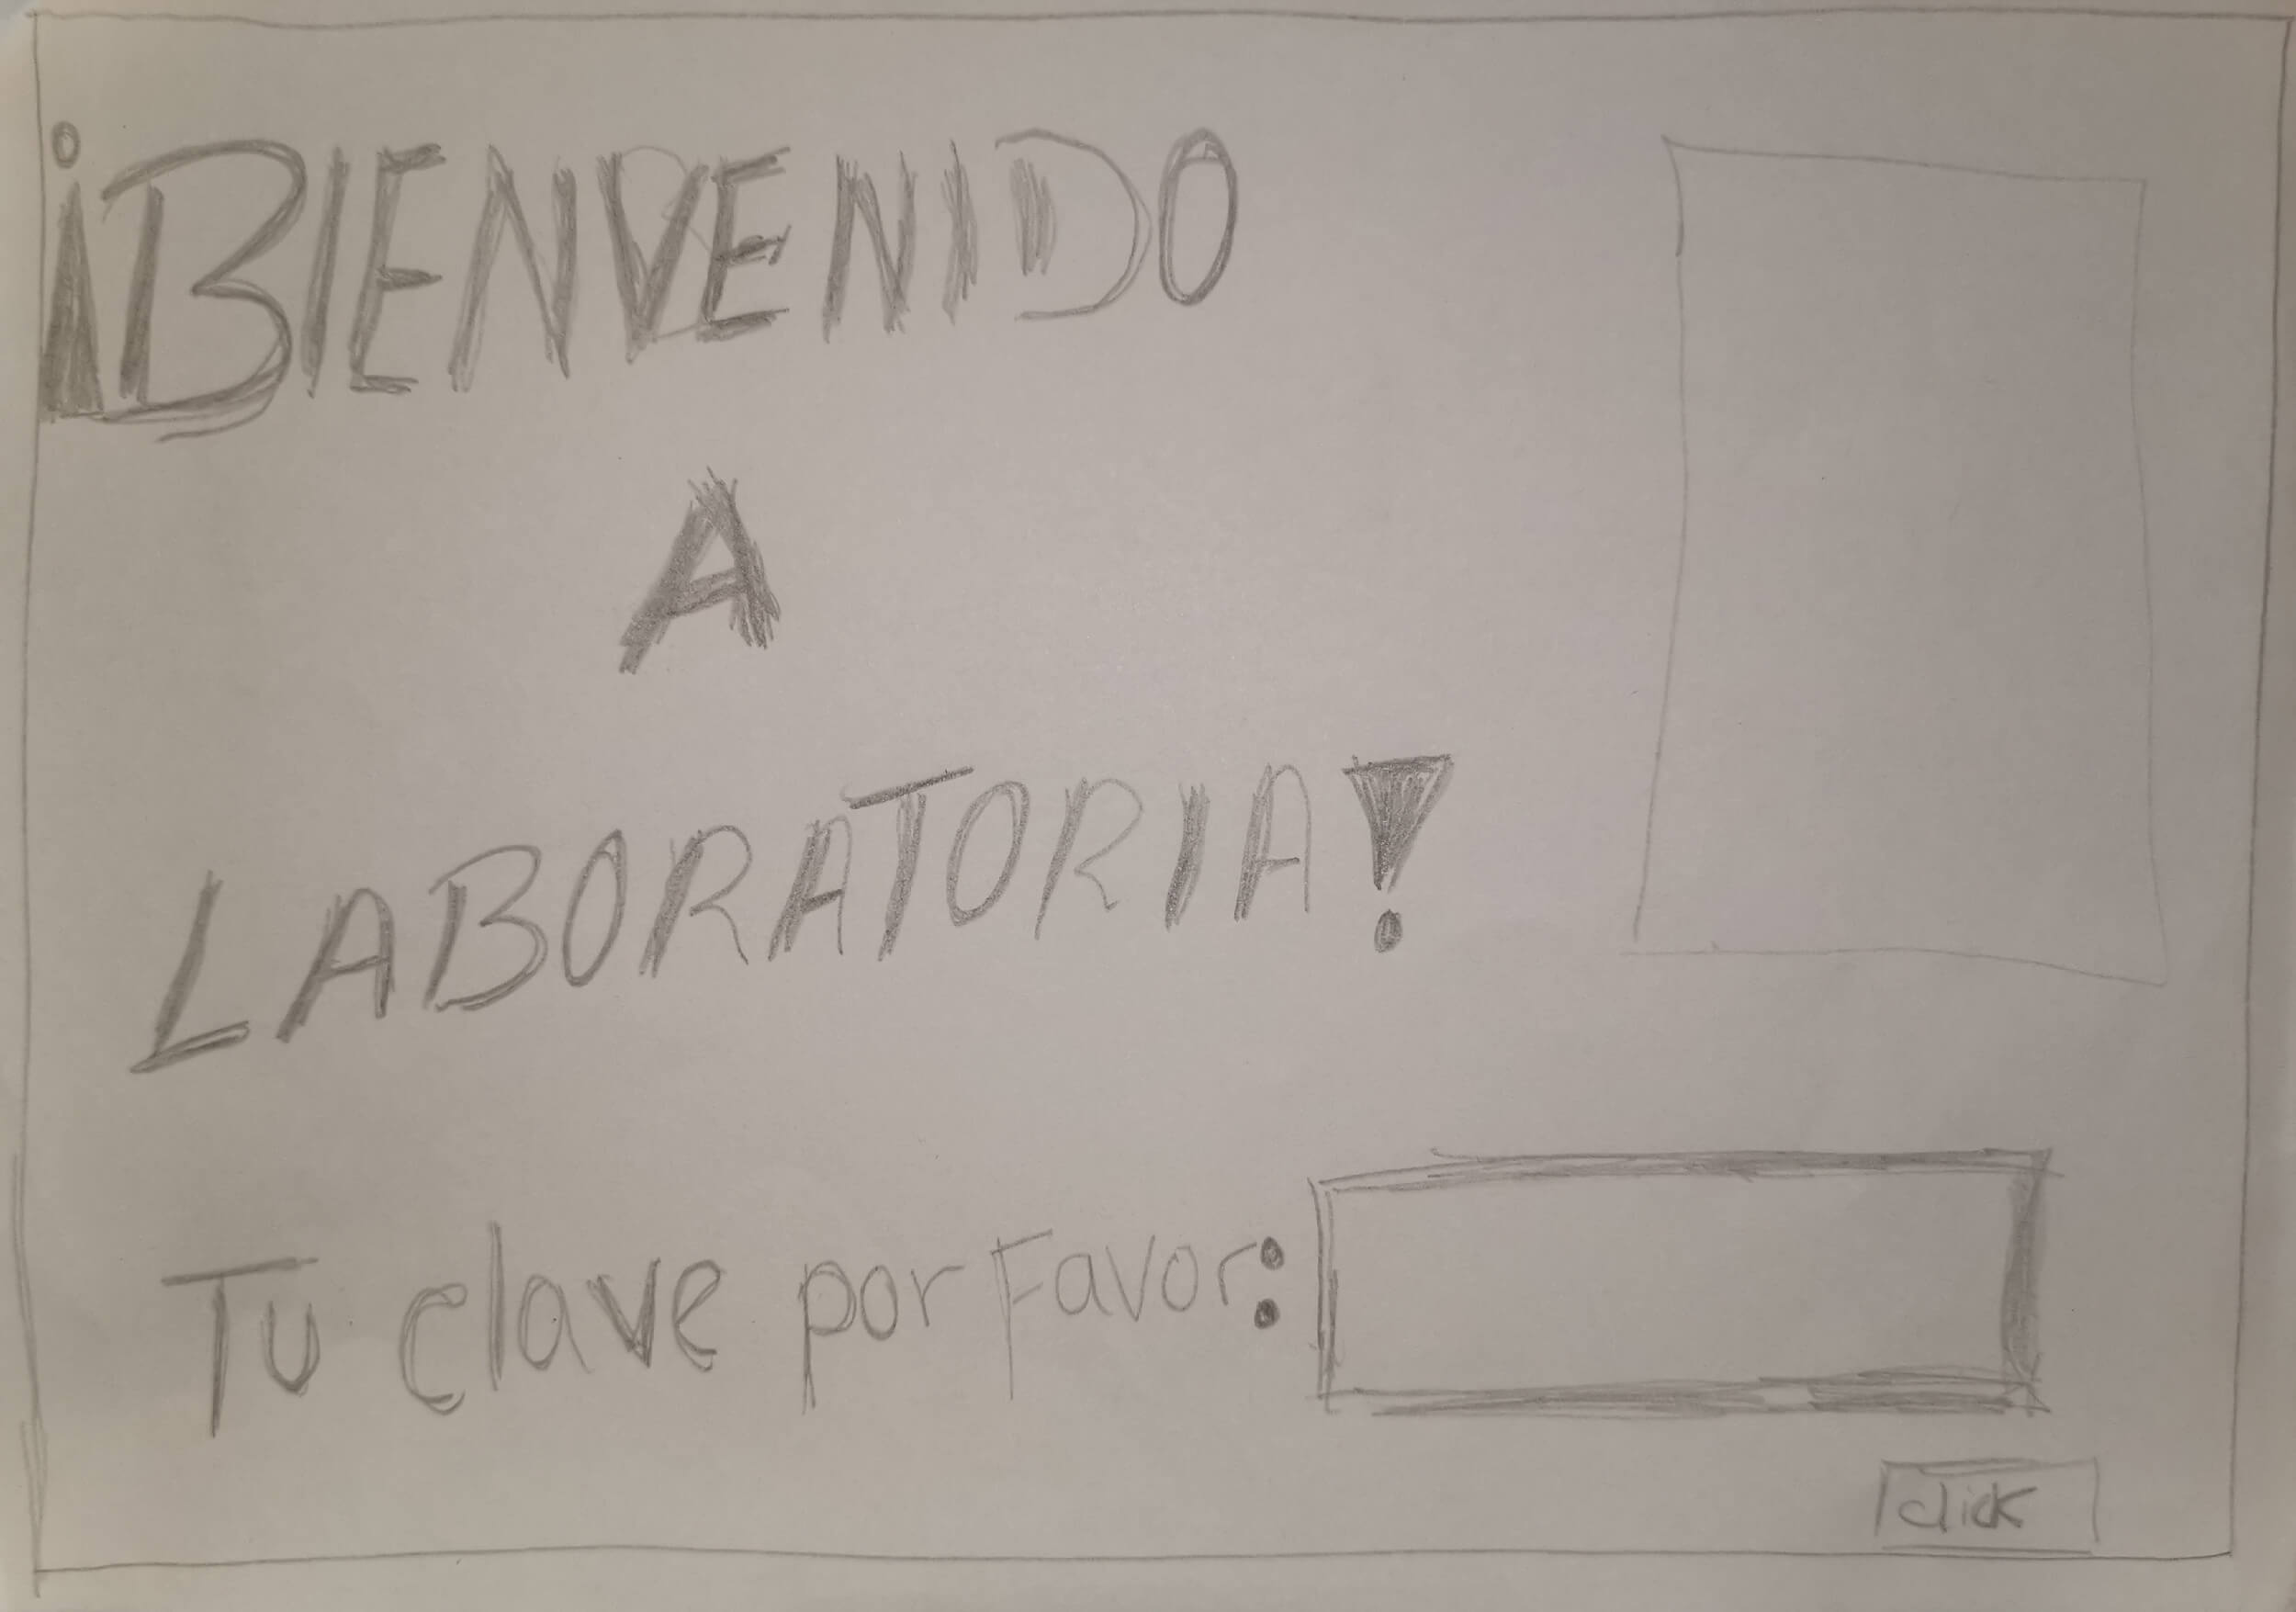 ¡BIENVENIDO
A
LABORATORIA!
Tu clave por Favor:
click